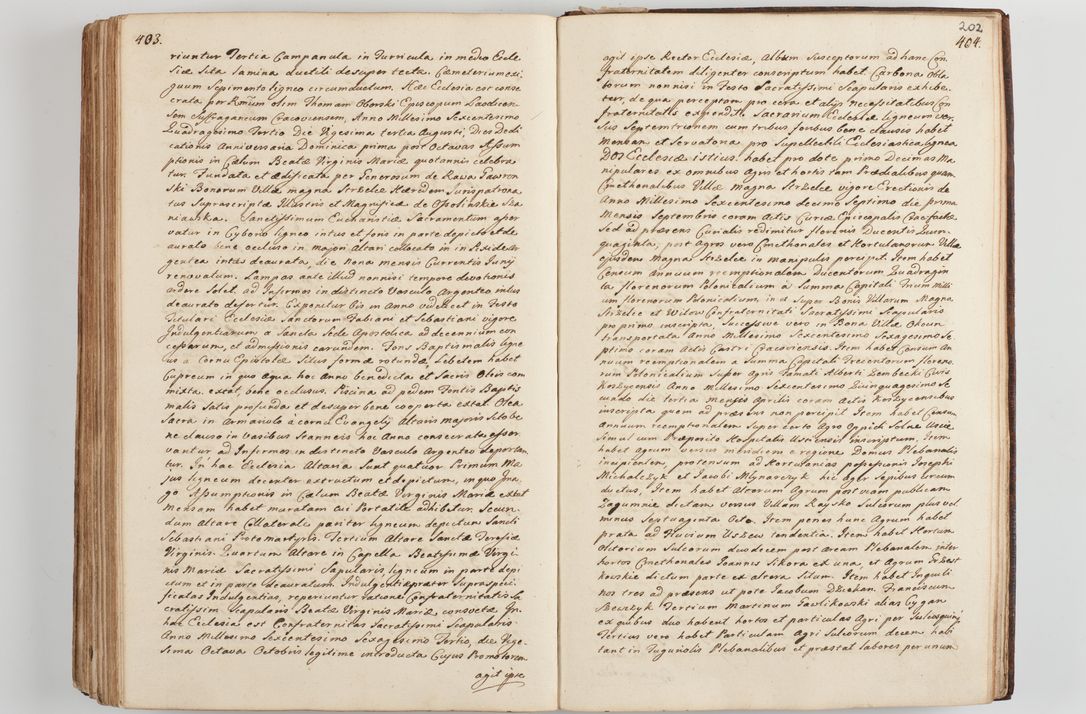 403.
riuntur Tertia Campanula in Turricula in medio Eccle
siæ sita lamina ductili desuper tecta. Cæmeterium exi
guum Sepimento ligneo circumductum. Hæc Ecclesia est conse
crata per Rm̃um olim Thomam Oborski Episcopum Laodicen
sem Suffraganeum Cracoviensem, Anno Millesimo Sexcentesimo
Quadragesimo Tertio Die Vigesima tertia Augusti, Dies Dedi
cationis Anniversaria Dominica prima post Octavas Assum
ptionis in Cælum Beatæ Virginis Mariæ quotannis celebra
tur. Fundata et ædificata per Generosum de Rawa Gawron
ski Bonorum Villæ magna Strzelce Hæredem Juris patrona
tus Suprascriptæ Illustris et Magnificæ de Ossolinskie Sta
niawska. Sanctissimum Eucharistiæ Sacramentum asser
vatur in Cyborio ligneo intus et foris in parte depicto et de
aurato bene occluso in majori Altari collocato in Pixide Ar
gentea intus deaurata, die Nona mensis Currentis Junij
renovatum. Lampas ante illud nonnisi tempore devotionis
ardere solet. ad Infirmos in distincto Vasculo Argenteo intus
deaurato defertur. Exponitur bis in Anno videlicet in Festo
Titulari Ecclesiæ Sanctorum Fabiani et Sebastiani vigore
Indulgentiarum a Sancta Sede Apostolica ad decennium con
cessarum, et admissionis earundem. Fons Baptismalis ligne
us a Cornu Epistolæ Situs formæ rotundæ, Lebetem habet
Cupreum in quo Aqua hoc Anno benedicta et Sacris Oleis com
mixta extat, bene occlusus. Piscina ad pedem Fontis Baptis
malis Satis profunda et desuper bene cooperta extat. Olea
Sacra in Armariolo à cornu Evangelij Altaris majoris Sito be
ne clauso in Vasibus Stanneis hoc Anno consecrata asser
vantur ad Infirmos in distincto Vasculo Argenteo deportan
tur. In hac Ecclesia Altaria Sunt quatuor Primum Ma
jus ligneum decenter extructum et depictum, in quo Ima
go Assumptionis in Cælum Beatæ Virginis Mariæ extat
Mensam habet muratam cui Portatile adhibetur. Secun
dum Altare Collaterale pariter ligneum depictum Sancti
Sebastiani Protomartyris. Tertium Altare Sanctæ Teresiæ
Virginis. Quartum Altare in Capella Beatissimæ Virgi
nis Mariæ Sacratissimi Scapularis, ligneum in parte depi
ctum et in parte deauratum. Indulgentiæ præter Supra speci
ficatas Indulgentias, reperiuntur ratione Confraternitatis Sa
cratissimi Scapularis Beatæ Virginis Mariæ, consuetæ. In
hac Ecclesia est Confraternitas Sacratissimi Scapularis
Anno Millesimo Sexcentesimo Sexagesimo Tertio, die Vige
sima Octava Octobris legitime introducta Cujus Promotorem
agit ipse
202
404.
agit ipse Rector Ecclesiæ, Album Susceptorum ad hanc Con
fraternitatem diligenter conscriptum habet. Carbona Obla
torum non nisi in Festo Sacratissimi Scapularis exhibe
tur, de qua perceptam pro cera et alijs necessitatibus Con
fraternitatis expendit. Sacrarium Ecclesiæ ligneum ver
sus Septemtrionem cum tribus foribus bene clausis habet
Mensam et Servatoria pro Supellectili Ecclesiastica lignea
DOS Ecclesiæ istius. habet pro dote primo Decimas Ma
nipulares ex omnibus Agris et hortis tam Prædialibus quam
Cmethonalibus Villæ Magna Strzelce vigore Erectionis de
Anno Millesimo Sexcentesimo decimo Septimo die prima
Mensis Septembris coram Actis Curiæ Episcopalis Confectæ
Sed ad præsens Curialis redimitur florenis Ducentis Quin
quaginta; post Agros vero Cmethonales et Hortulanorum Villæ
ejusdem Magna Strzelce in manipulis percipit. Item habet
Censum Annuum reemptionalem Ducentorum Quadragin
ta florenorum Polonicalium à Summa Capitali Trium Milli
um florenorum Polonicalium, in et Super Bonis Villarum Magna
Strzelce et Witow Confraternitati Sacratissimi Scapularis
pro primo inscripta, Successive vero in Bona Villæ Chocun
transportata Anno Millesimo Sexcentesimo Sexagesimo Se
ptimo coram Actis Castri Cracoviensis. Item habet Censum An
nuum reemptionalem a Summa Capitali Trecentorum florenc
rum Polonicalium Super Agris Famati Alberti Zembecki Civis
Koszycensis Anno Millesimo Sexcentesimo Quinquagesimo Se
cundo die tertia Mensis Aprilis coram Actis Koszycensibus
inscripta quem ad præsens non percipit. Item habet Censum
Annuum reemptionalem Super certo Agro Oppidi Solne Uscie
Simul cum Præposito Hospitalis Ustiensis inscriptum. Item
habet Agrum versus meridiem e regione Domus Plebanalis
incipientem, protensum ad Hortulanias possessionis Josephi
Michalczyk et Jacobi Mlynarczyk hic Ager Sepibus circum
ductus, Item habet Alterum Agrum post viam publicam
Zagumnie dictam versus Villam Raysko Sulcorum plus vel
minus Septuaginta Octo. Item penes hunc Agrum habet
prata ad Fluvium Uszew tendentia. Item habet Hortum
Olitorium Sulcorum duodecem post Aream Plebanalem, inter
hortos Cmethonales Joannis Sikora ex una, et Agrum Srzest
kowskie dictum parte ex altera Situm. Item habet Inquili
nos tres ad præsens ut pote Jacobum Dziekan. Franciscum
Bewszyk Tertium Martinum Gawlikowski alias Cygan
ex quibus duo habent hortos et particulas Agri per Sulcos quinq
Tertius vero habet Particulam Agri Sulcorum decem habi
tant in Tuguriolis Plebanalibus et præstat labores per unum